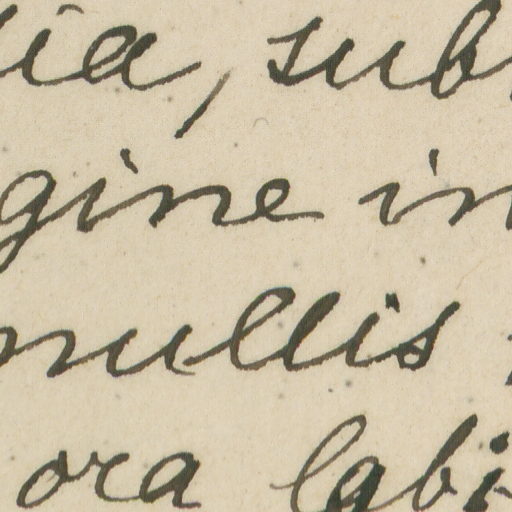 ia, sub
gine in
nullis
ora labi